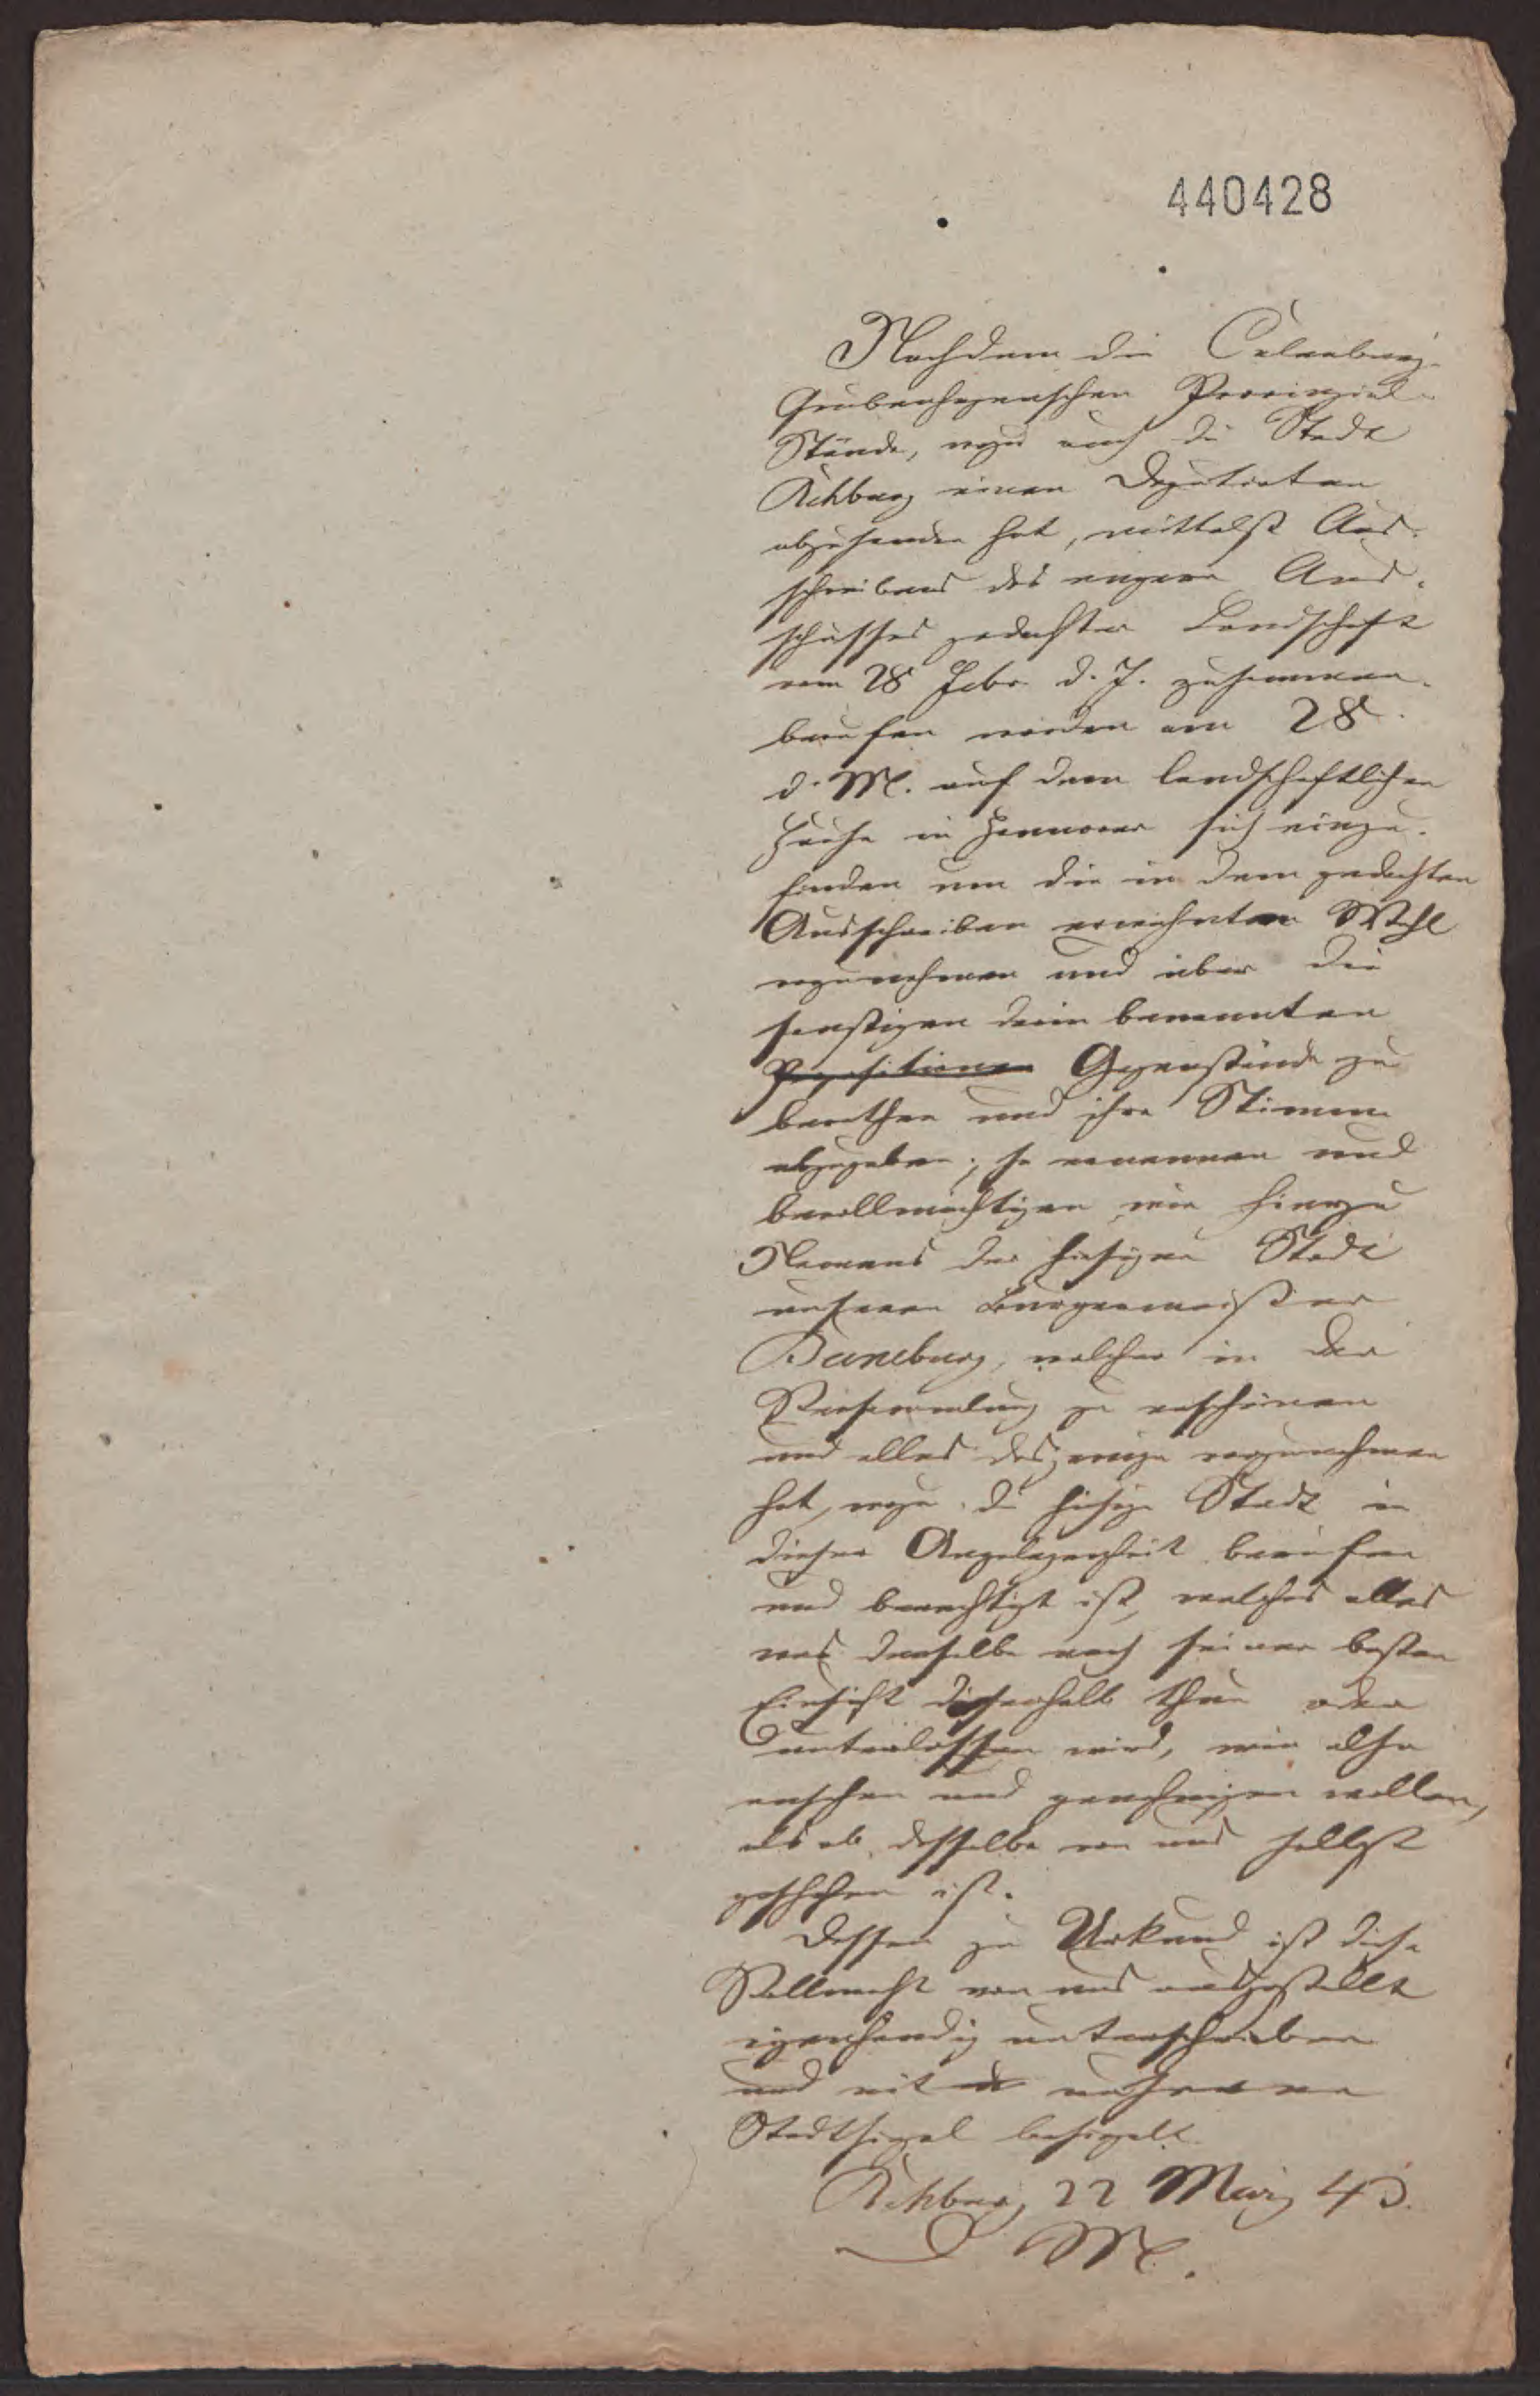 440428
Nachdem die Calenberg-
Grubenhagenschen Provinzial-
Stände, wozu auch die Stadt
Rehburg einen Deputirten
abzusenden hat, mittelst Aus-
schreibens des engern Aus-
schusses gedachter Landschaft
vom 28 Febr. d. J. zusammen-
berufen worden am 28
d. M. auf dem landschaftlichen
Hause in Hannover sich einzu-
finden um die in dem gedachten
Ausschreiben erwähnten Wahl
vorzunehmen und über die
sonstigen darin benannten
Propositionen Gegenstände zu
berathen und ihre Stimme
abzugeben; so ernennen und
bevollmächtigen wir hierzu
Namens der hiesigen Stadt
unseren Bürgermeister
welcher in der
Versammlung zu erscheinen
und alles dasjenige vorzunehmen
hat, wozu die hiesige Stadt in
dieser Angelegenheit berufen
und berechtigt ist, welches alles
was derselbe nach seiner besten
Einsicht dieserhalb thun oder
unterlassen wird, wir also
ansehen und genehmigen wollen,
als ob dasselbe von uns selbst
geschehen ist.
Dessen zu Urkund ist diese
Vollmacht von uns ausgestellt
eigenhändig unterschrieben
und mit unserem
Stadtsiegel besiegelt
Rehburg, 22 März 43.
D. M.